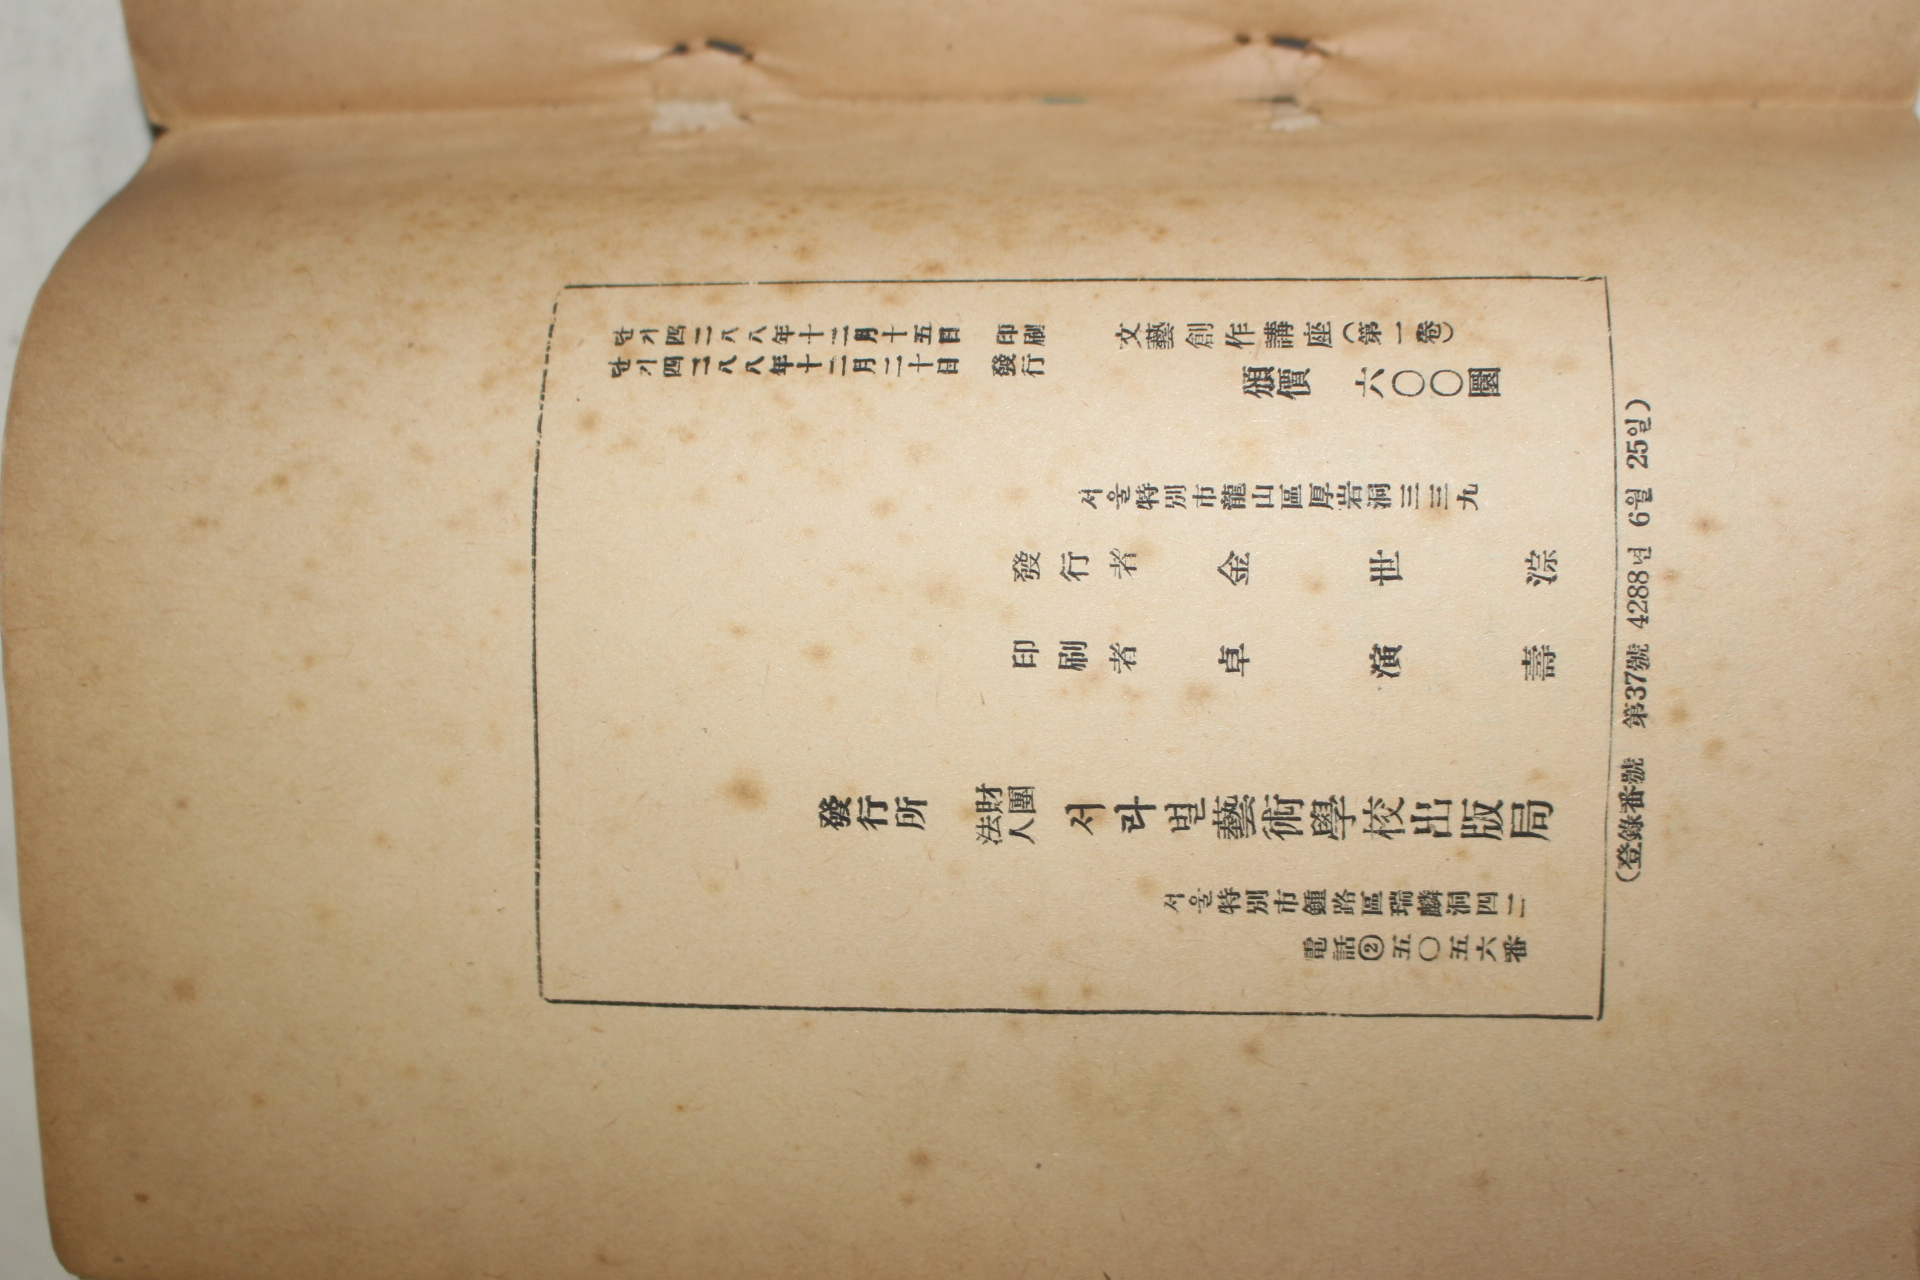 단기四二八八年十二月十五日 印刷
단기四二八八年十二月二十日 發行
文藝創作講座(第一卷)
頒價 六〇〇圜
서울特別市龍山區厚岩洞三三九
發行者 金世淙
印刷者 卓演壽
發行所 財團法人 서라벌藝術學校出版局
서울特別市鍾路區瑞麟洞四二
電話②五〇五六番
(登錄番號 第37號 4288년 6월 25일)